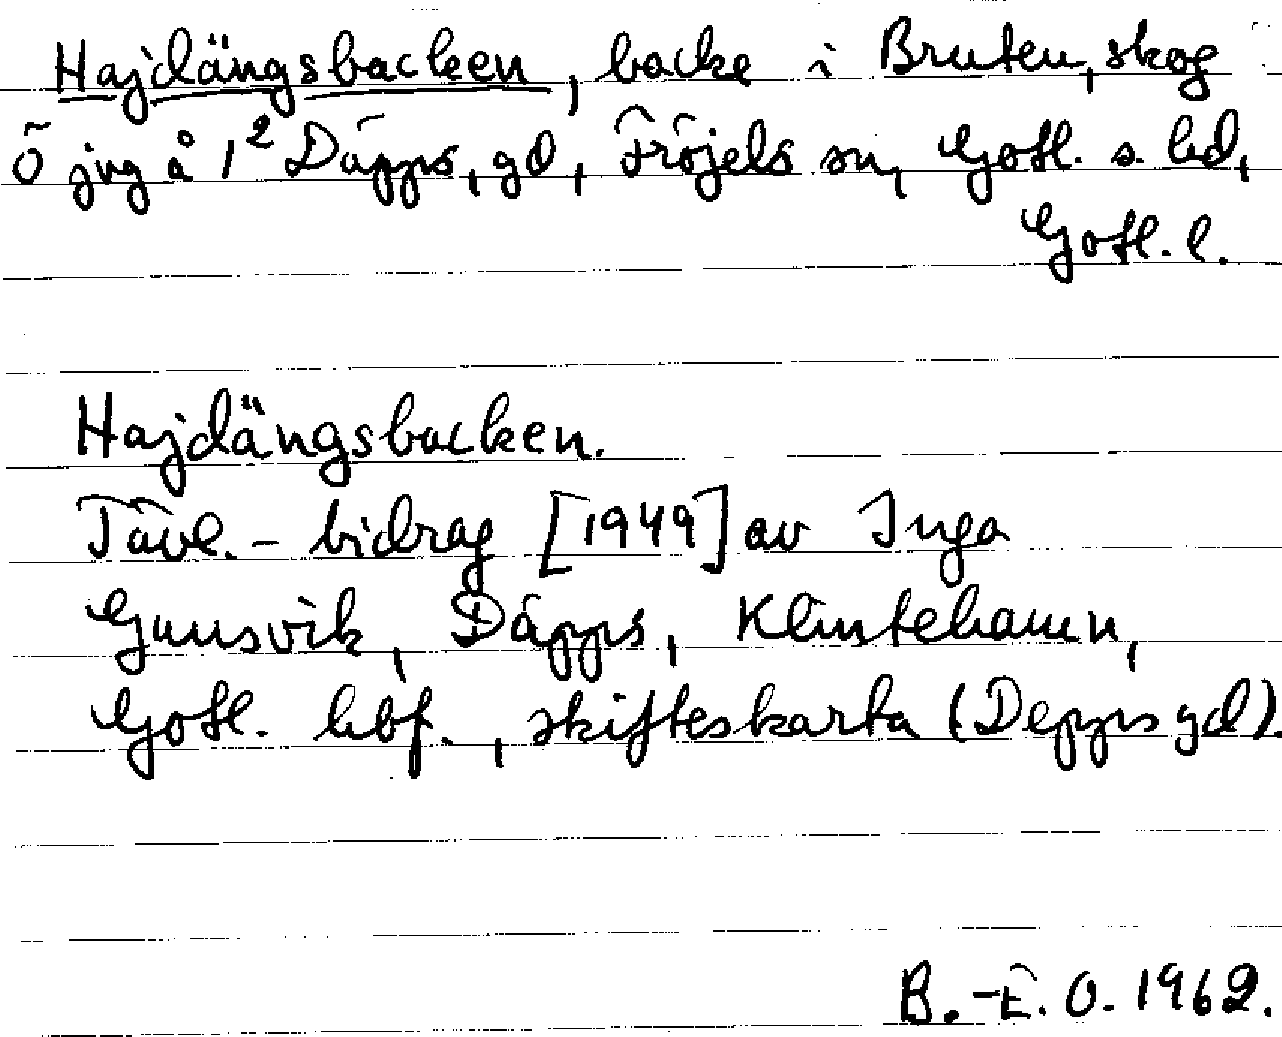 Hajdängsbacken, backe i Bruten, skog
Ö jvg å 1² Däpps, gd, Fröjels sn, Gotl. s. hd,
Gotl. l.
Hajdängsbacken.
Tävl.-bidrag [1949] av Inga
Gunsvik, Däpps, Klintehamn,
Gotl. hbf., skifteskarta (Depps gd).
B.-E. O. 1962.